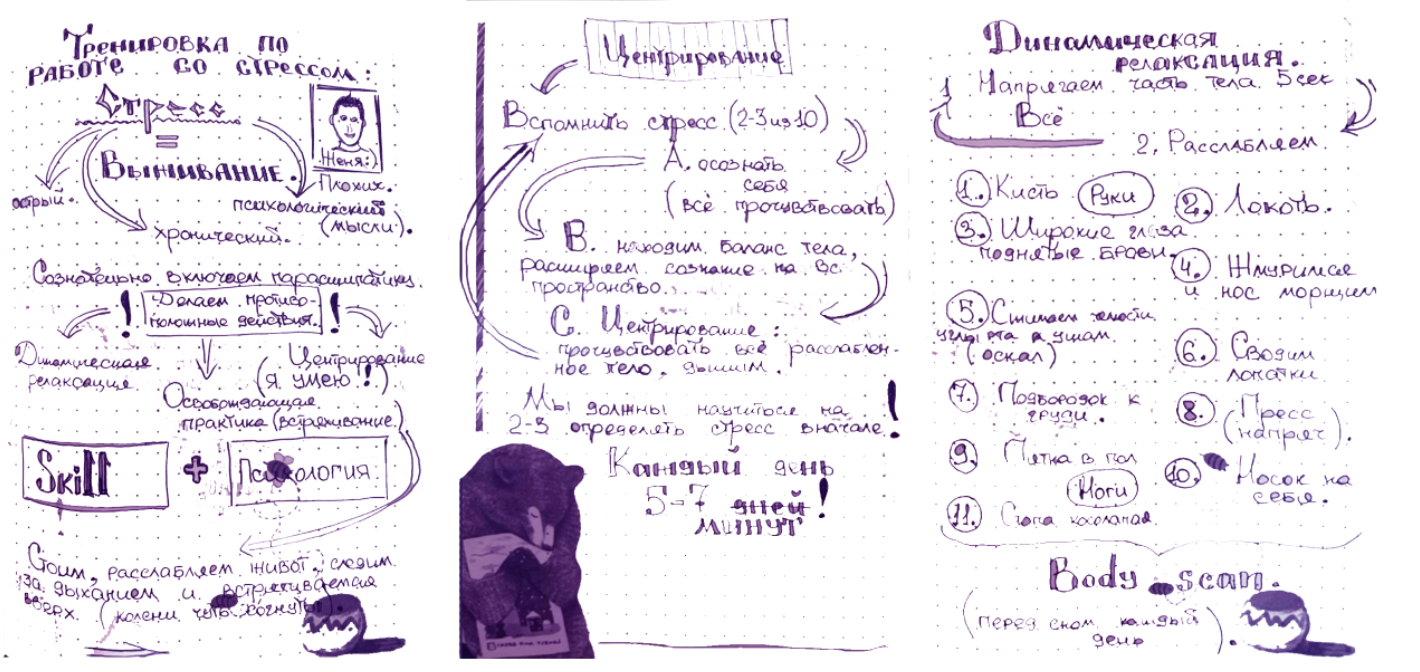 Тренировка по
работе со стрессом:
Стресс
=
Выживание.
Женя:)
Плохих.
острый.
психологический
(мысли).
хронический.
Сознательно включаем парасимпатику.
! Делаем противо-
положные действия. !
Динамическая
релаксация.
Центрирование
(я умею!)
Освобождающая
практика (встряхивание.)
Skill + Психология.
Стоим, расслабляем живот, следим
за дыханием и встряхиваемся
вверх. (колени чуть согнуты).
Центрирование
Вспомнить стресс (2-3 из 10)
А. осознать
себя
(всё прочувствовать)
В. находим баланс тела,
расширяем сознание на вс
пространство.
С. Центрирование:
прочувствовать всё расслаблен-
ное тело, дышим.
Мы должны научиться на
2-3 определять стресс вначале!
Каждый день
5-7 дней!
минут
Динамическая
релаксация.
1 Напрягаем часть тела 5 сек
Всё
2. Расслабляем.
1. Кисть Руки
2. Локоть.
3. Широкие глаза
поднятые брови.
4. Жмуримся
и нос морщим
5. Сжимаем челюсти
углы рта к ушам.
(оскал)
6. Сводим
лопатки
7. Подбородок к
груди.
8. (Пресс
напряч).
9. Пятка в пол
Ноги
10. Носок на
себя.
11. Стопа косолапая.
Body scan.
(перед сном каждый
день).